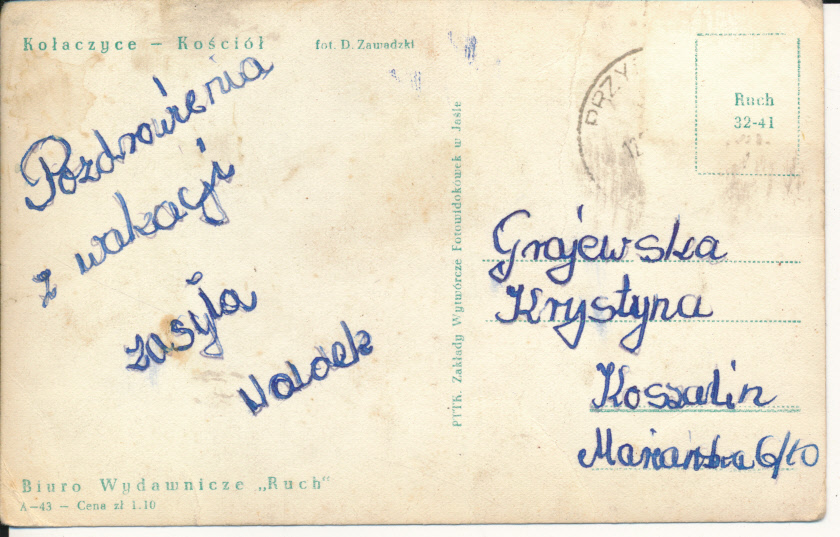 Kołaczyce — Kościół
fot. D. Zawadzki
Pozdrowienia
z wakacji
zasyła
Waldek
Biuro Wydawnicze „Ruch"
A—43 — Cena zł 1.10
PTTK. Zakłady Wytwórcze Fotowidokówek w Jaśle
PRZY
Ruch
32-41
Grajewska
Krystyna
Koszalin
6/10